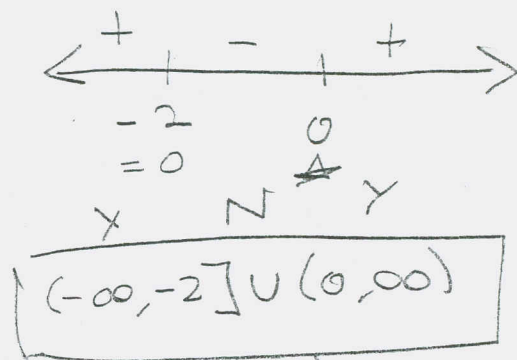 + - +
-2 0
=0
Y N Y
(-∞,-2]∪(0,∞)